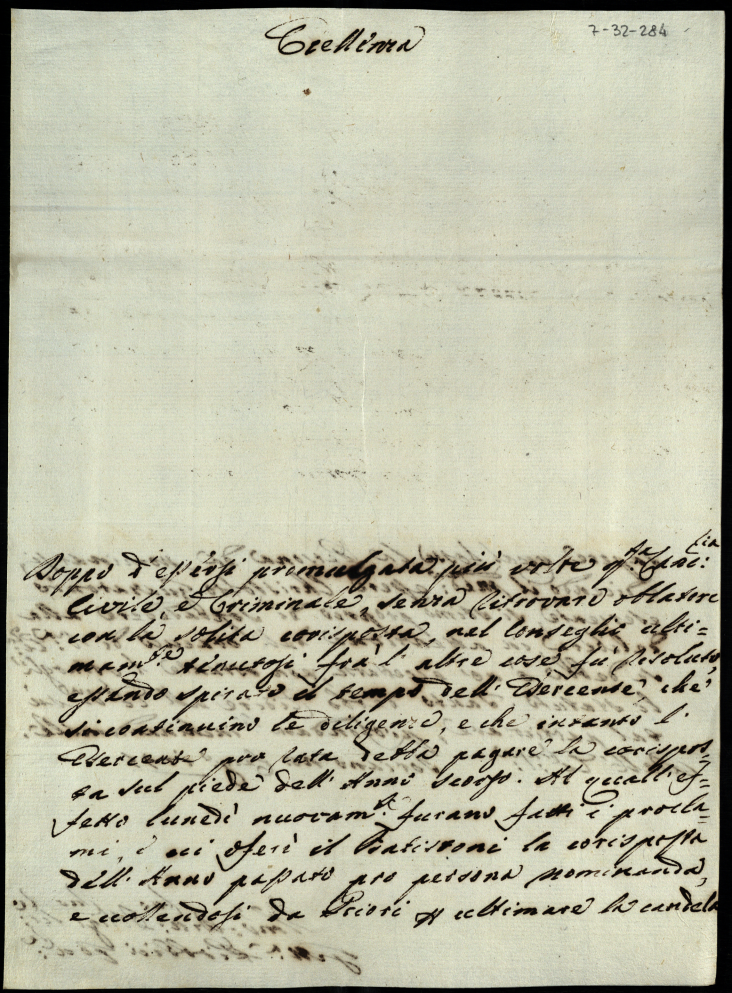 7-32-284
Eccellenza
Doppo d'essersi promulgata più volte q.ta Canc:ria
Civile e Criminale, senza ritrovare oblatore
con la solita corisposta, nel Conseglio ulti-
mam.te tenutosi frà l'altre cose fù risoluto,
essendo spirato il tempo dell'Esercente, che
si continuino le diligenze, e che intanto l'
Esercente pro rata debba pagare la corispos-
ta sul piede dell'Anno scorso. Al quall'ef-
fetto lunedì nuovam.te furano fatti i procla-
mi, e vi oferì il Batistoni la corisposta
dell'Anno passato pro persona nominanda,
e vollendosi da Priori ultimare la candela